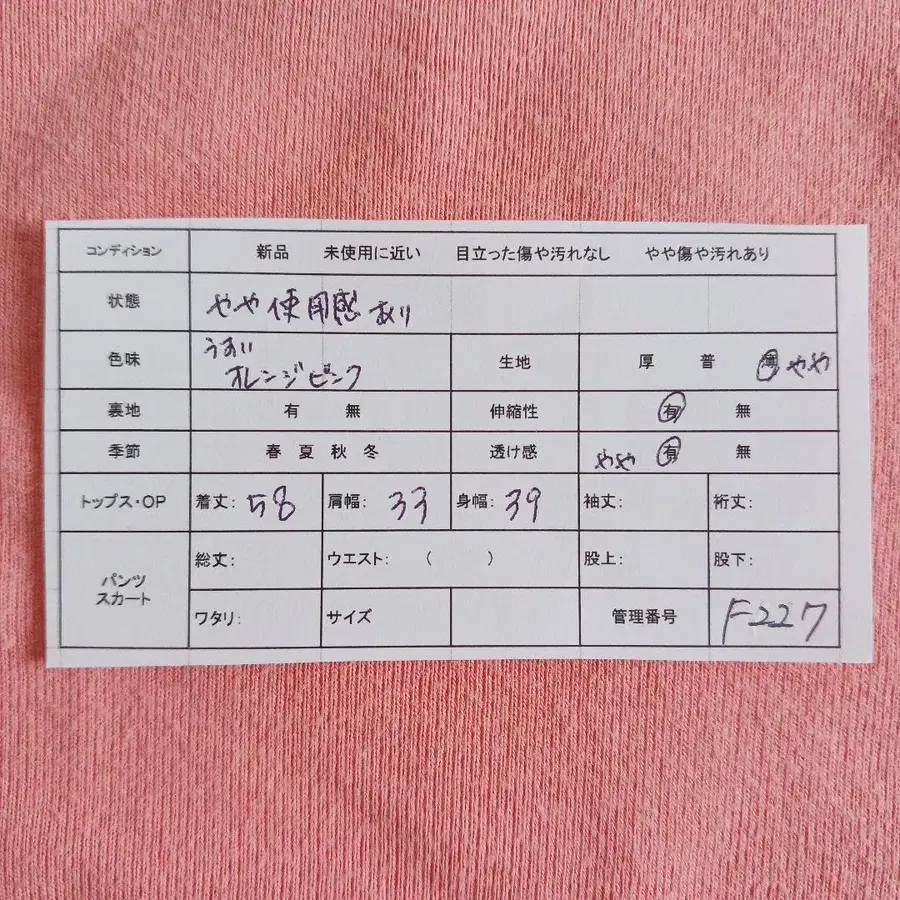 コンディション 新品 未使用に近い 目立った傷や汚れなし やや傷や汚れあり
状態 やや使用感あり
色味 うすい オレンジピンク 生地 厚 普 薄 やや
裏地 有 無 伸縮性 有 無
季節 春 夏 秋 冬 透け感 やや 有 無
トップス・OP 着丈: 58 肩幅: 33 身幅: 39 袖丈: 裄丈:
パンツ スカート 総丈: ウエスト: ( ) 股上: 股下:
ワタリ: サイズ 管理番号 F227